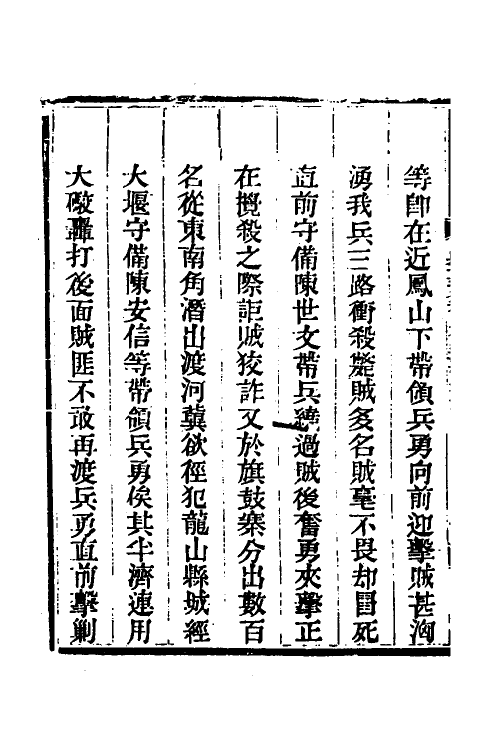 等即在近鳳山下帶領兵勇向前迎擊賊甚洶
湧我兵三路衝殺斃賊多名賊毫不畏却冒死
直前守備陳世文帶兵繞過賊後奮勇夾擊正
在攪殺之際詎賊狡詐又於旗鼓寨分出數百
名從東南角潛出渡河冀欲徑犯龍山縣城經
大堰守備陳安信等帶領兵勇俟其半濟連用
大礮轟打後面賊匪不敢再渡兵勇直前擊剿